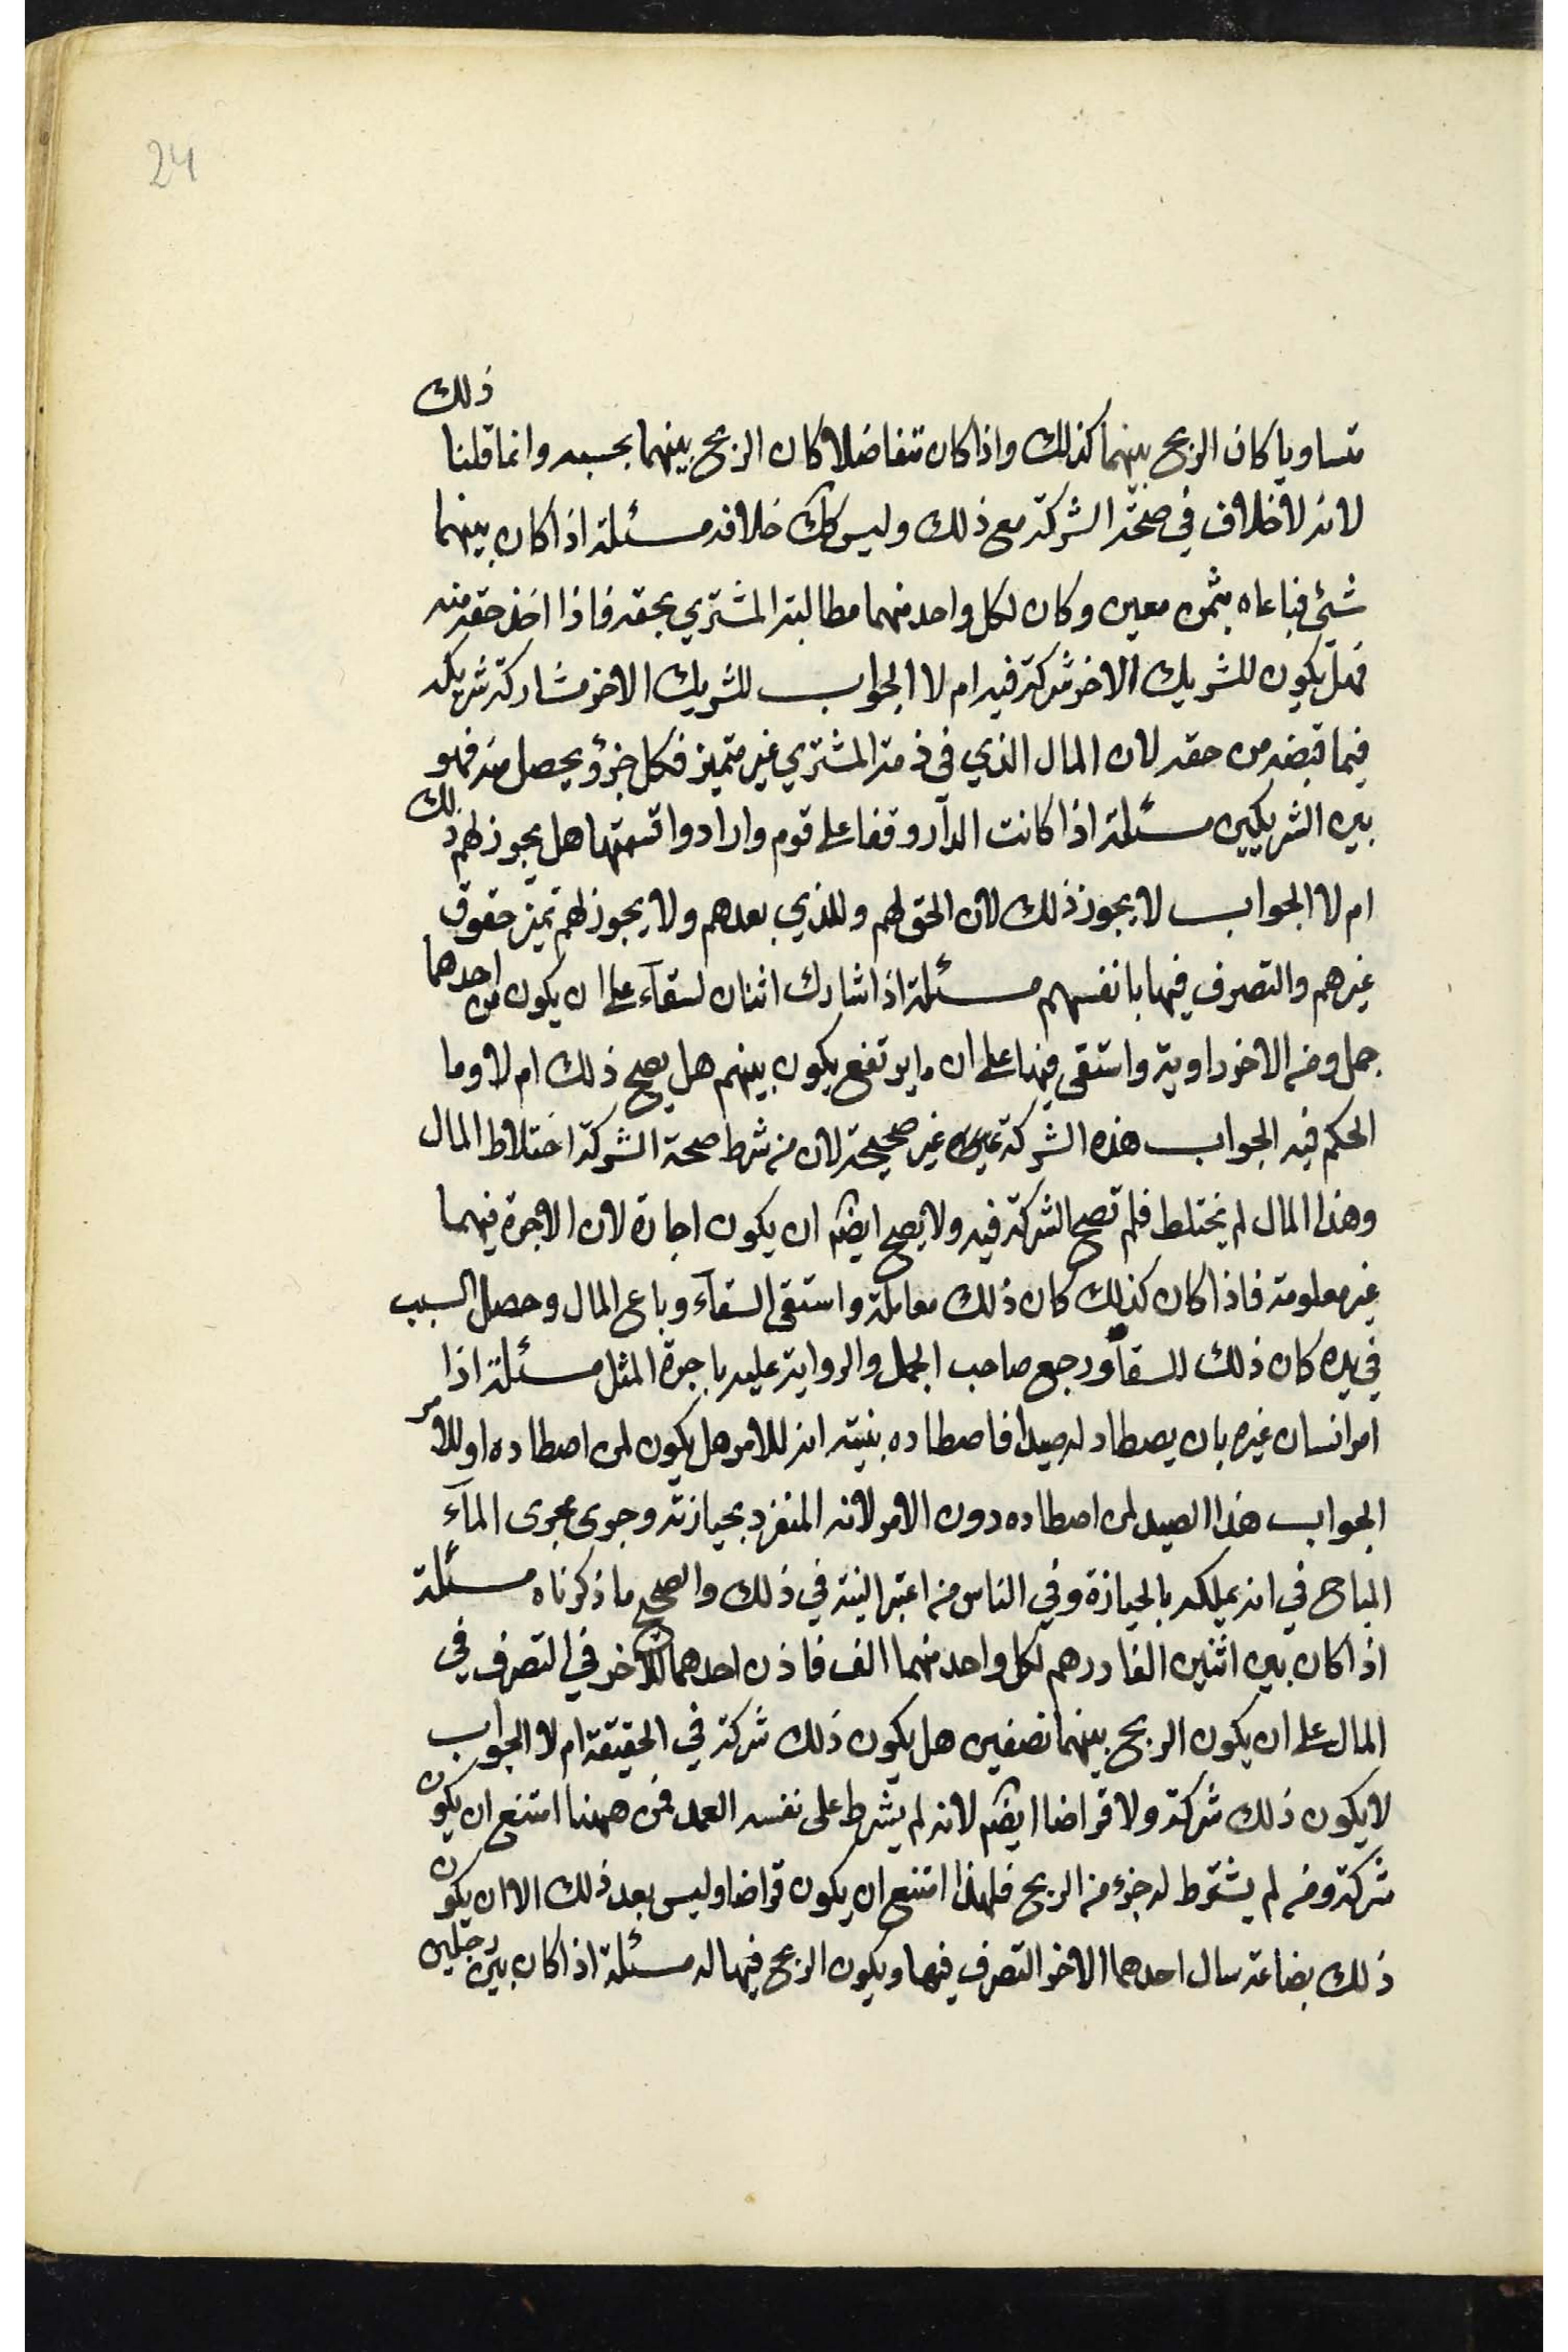 24
متساويا كان الربح بينهما كذلك واذا كان متفاضلا كان الربح بينهما بحسبه وانما قلنا ذلك
لانه لا خلاف في صحة الشركة مع ذلك وليس كك خلافه مسئلة اذا كان بينهما
شئ فباعاه بثمن معين وكان لكل واحد منهما مطالبة المشتري بحقه فاذا اخذ حقه منه
فهل يكون للشريك الاخر شركة فيه ام لا الجواب للشريك الاخر مشاركة شريكه
فيما قبضه من حقه لان المال الذي في ذمة المشتري غير متميز فكل جزؤ يحصل منه فهو
بين الشريكين مسئلة اذا كانت الدار وقفا على قوم وارادوا قسمتها هل يجوز لهم ذلك
ام لا الجواب لا يجوز ذلك لان الحق لهم وللذي بعدهم ولا يجوز لهم تميز حقوق
غيرهم والتصرف فيها بانفسهم مسئلة اذا شارك اثنان لسقآء على ان يكون من احدهما
جمل ومن الاخر راوية واستقى فيها على ان ما يرتفع يكون بينهم هل يصح ذلك ام لا وما
الحكم فيه الجواب هذه الشركة غير صحيحة لان من شرط صحة الشركة اختلاط المال
وهذا المال لم يختلط فلم تصح الشركة فيه ولا يصح ايضم ان يكون اجارة لان الاجرة فيهما
غير معلومة فاذا كان كذلك كان ذلك معاملة واستقى السقآء وباع المال وحصل السبب
في يده كان ذلك للسقآء ورجع صاحب الجمل والرواية عليه باجرة المثل مسئلة اذا
امر انسان غيره بان يصطاد له صيدا فاصطاده بنيته انه للامر هل يكون لمن اصطاده او للامر
الجواب هذا الصيد لمن اصطاده دون الامر لانه المنفرد بحيازته وجرى مجرى المآء
المباح في انه يملكه بالحيازة وفي الناس من اعتبر النية في ذلك والصحيح ما ذكرناه مسئلة
اذا كان بين اثنين الفا درهم لكل واحد منهما الف فاذن احدهما للاخر في التصرف في
المال على ان يكون الربح بينهما نصفين هل يكون ذلك شركة في الحقيقة ام لا الجواب
لا يكون ذلك شركة ولا قراضا ايضم لانه لم يشرط على نفسه العمل فمن ههنا امتنع ان يكون
شركة ومن لم يشترط له جزء من الربح فلهذا امتنع ان يكون قراضا وليس بعد ذلك الا ان يكون
ذلك بضاعة سال احدهما الاخر التصرف فيها ويكون الربح فيها له مسئلة اذا كان بين رجلين